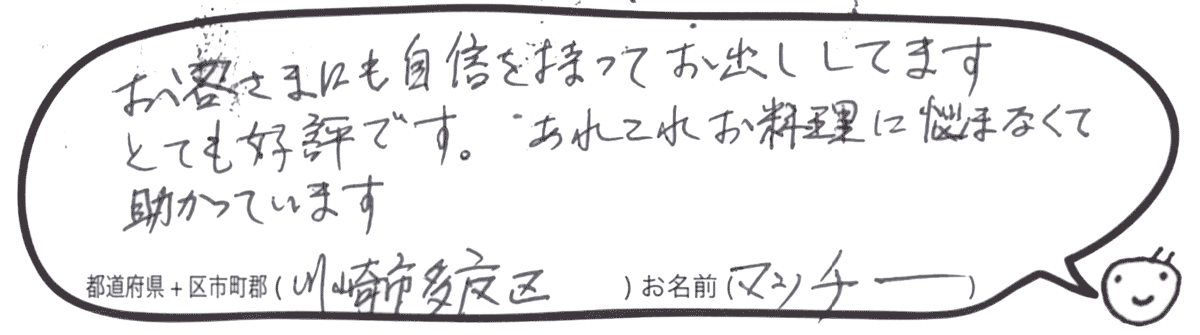 お客さまにも自信を持ってお出ししてます
とても好評です。あれこれお料理に悩まなくて
助かっています
都道府県+区市町郡(川崎市多摩区)お名前(マンチー)